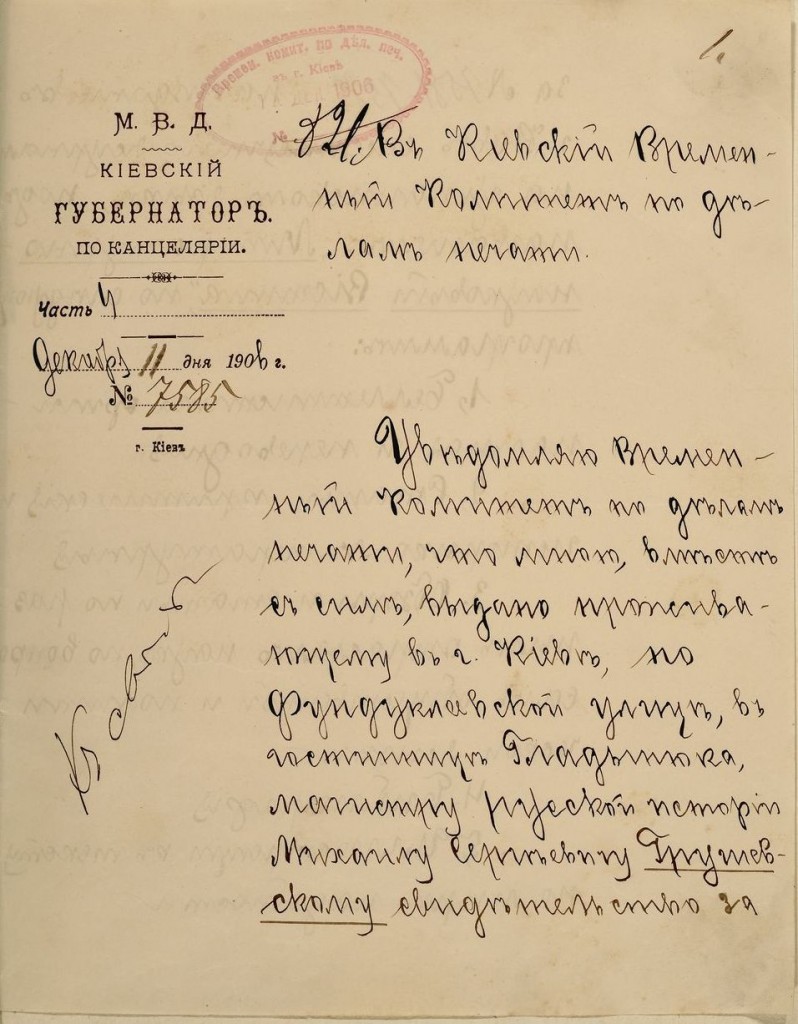 1.
Времен. комит. по дѣл. печ.
въ г. Кіевѣ
1906
№
М. В. Д.
КІЕВСКІЙ
ГУБЕРНАТОРЪ.
ПО КАНЦЕЛЯРІИ.
Часть
Декабря 11 дня 1906 г.
№ 7585
г. Кіевъ
Въ Кіевскій Времен-
ный Комитетъ по дѣ-
ламъ печати.
Увѣдомляю Времен-
ный Комитетъ по дѣламъ
печати, что мною, вмѣстѣ
съ симъ, выдано прожива-
ющему въ г. Кіевѣ, по
Фундуклеевской улицѣ, въ
гостиницѣ Гладынюка,
магистру русской исторіи
Михаилу Сергѣевичу Грушев-
скому свидѣтельство за